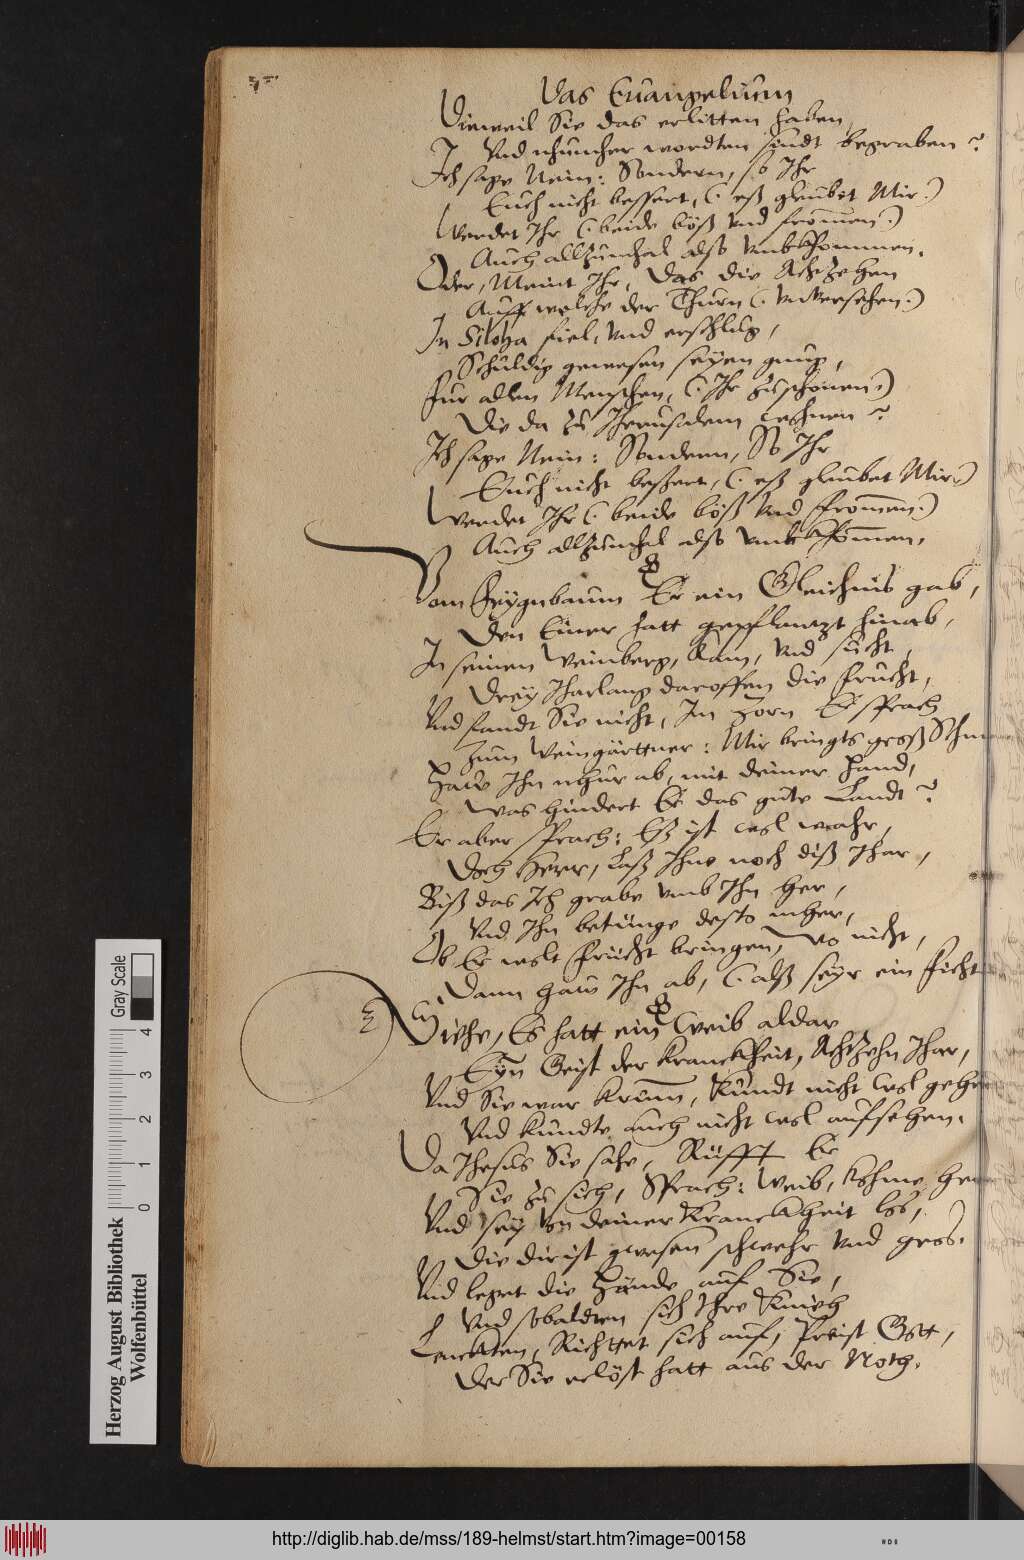 Das Euangelium
Dieweil Sie das erlitten haben,
Vnd nhuncher wordten sindt begraben?
Ich sage Nein: Sondern, so Ihr
Euch nicht bessert, (: eß gleubet Mir:)
Werdet Ihr (: beide böß vnd frommen:)
Auch allzumhal also vmbkhommen.
Oder, Meint Ihr, das die Achtzehen
Auff welche der Thurn (: vnversehen:)
In Siloha fiel, vnd erschlug,
Schuldig gewesen seyen gnug,
Fur allen Menschen, (: Ihr zuschönen:)
Die da zu Iherusalem wohnen?
Ich sage Nein: Sondern, So Ihr
Euch nicht beßert, (: eß gleubet Mir:)
Werdet Ihr (: beide böß vnd frommen:)
Auch allzumhal also vmbkhommen.
Vom Feygnbaum Er ein Gleichnis gab,
Den Einer hatt gepflantzt hinab,
In seinen Weinberg, kam, vnd sucht,
Drey Iharlang daroffen die frucht,
Vnd fandt Sie nicht, Im Zorn Er sprach
Zum Weingärttner: Mir bringts groß
Haw Ihn nhur ab, mit deiner Hand,
Was hindert Er das gute Landt?
Er aber sprach: Eß ist wol wahr,
Doch Herr, Laß Ihne noch diß Ihar,
Biß das Ich grabe vmb Ihn her,
Vnd Ihn betunge desto mher,
Ob Er wolt frücht bringen, wo nicht,
Dann haw Ihn ab, (: alß seyr ein ficht
Siehe, Es hatt ein Weib aldar
Eyn Geist der kranckheit, Achtzehn Ihar,
Vnd Sie war krumm, kundt nicht wol gehen
Vnd kundte auch nicht wol aufsehen.
Da Ihesus Sie sahe, Rüfft Er
Sie zu sich, Sprach: Weib, khome her
Vnd sey von deiner Kranckheit los,
Die dir ist gwesen schwehr vnd gros.
Vnd leget die Hände auf Sie,
Vnd sobaldten sich Ihre Kniech
Lenckten, Richttet sich auf, Preist Gott,
Der Sie erlöst hatt aus der Noth.
Herzog August Bibliothek
Wolfenbüttel
0 1 2 3 4
Gray Scale
http://diglib.hab.de/mss/189-helmst/start.htm?image=00158